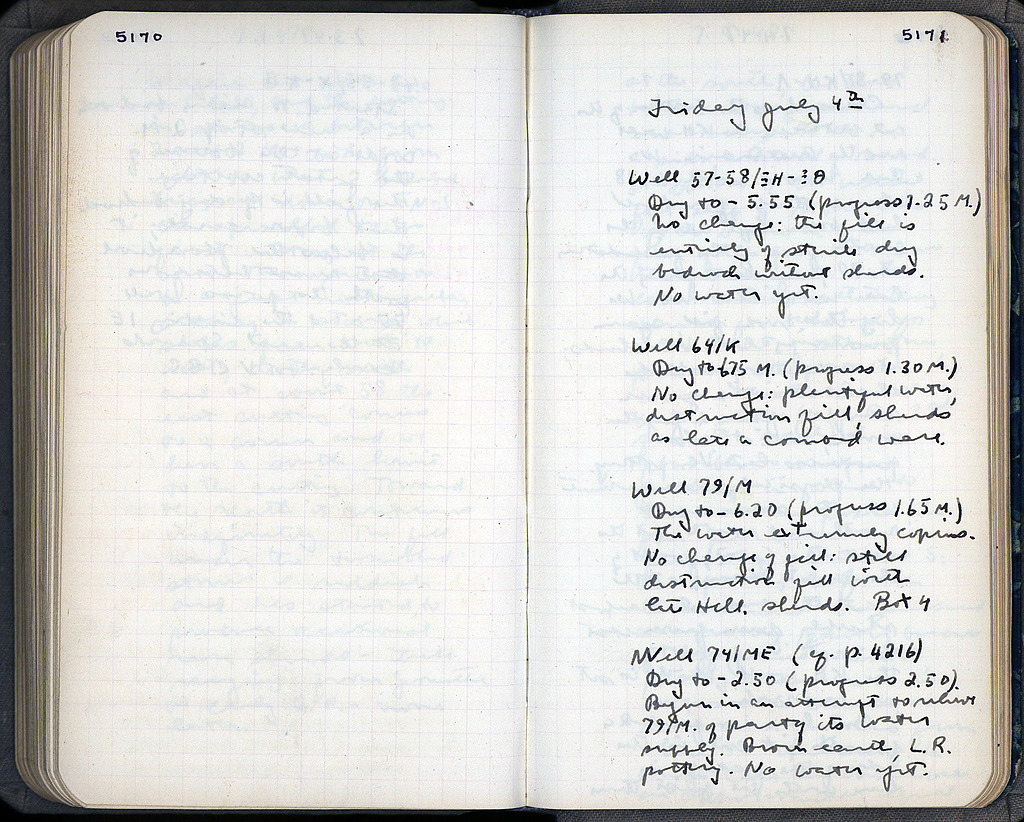 5170
5171
Friday July 4th
Well 57-58/ΞΗ-ΞΘ
Dug to - 5.55 (progress 1.25 M.)
No change: the fill is
entirely of sterile dug
bedrock without sherds.
No water yet.
Well 64/K
Dug to 6.75 M. (progress 1.30 M.)
No change: plentiful water,
destruction fill, sherds
as late as combed ware.
Well 79/M
Dug to - 6.20 (progress 1.65 M.)
The water extremely copious.
No change of fill: still
destruction fill with
late Hell. sherds. Box 4
Well 74/ME (cf. p. 4216)
Dug to - 2.50 (progress 2.50).
Begun in an attempt to relieve
79/M. of partly its water
supply. Brown earth, L.R.
pottery. No water yet.